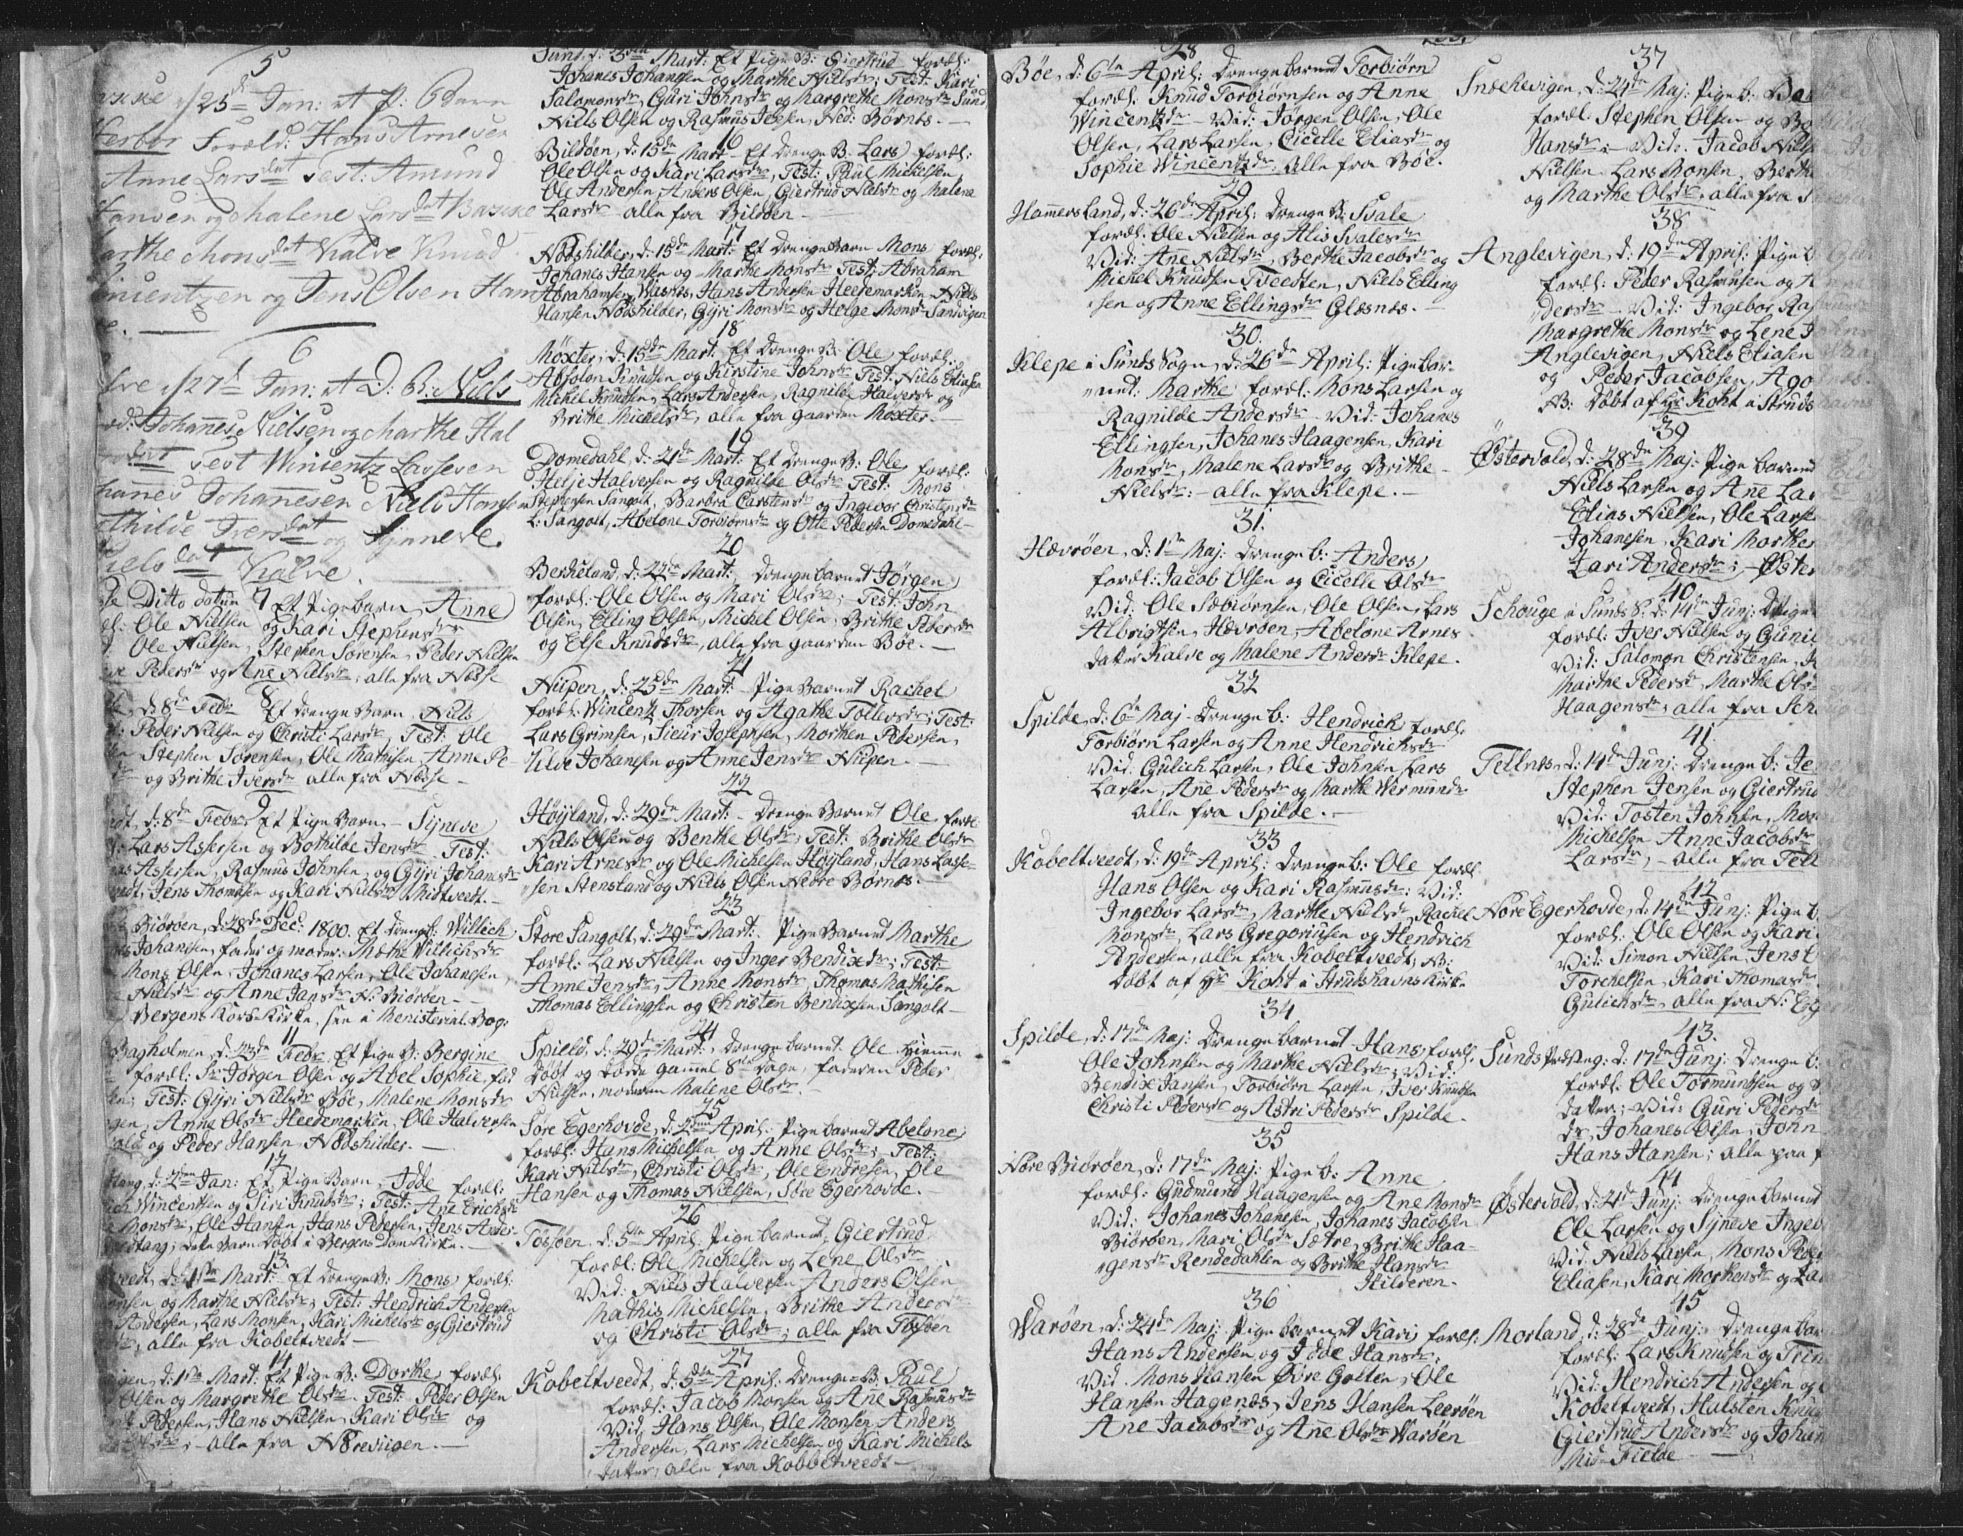 5
25de Jan: et P: Barn
Foræld: Hans Arnesen
Anne Larsdat Test: Amund
Hansen og Malene Larsdat
Monsdat Kalve Knud
og Jens Olsen Ham
6
27d Jan: et D: B: Niels
Johannes Nielsen og Marthe Hal
Test Wincentz Lassesen
Johannesen Niels Hansen
Iversdat og Synneve
Nielsdat Kalve.
7
Ditto datum Et Pigebarn Anne
Ole Nielsen og Kari Stephensdr
Ole Nielsen, Stephen Sørensen, Peder Nielsen
Pedersdr og Ane Nielsdr; alle fra Næsse
8
d: 8de Febr Et drenge Barn Niels
Peder Nielsen og Christi Larsdr, Test: Ole
Stephen Sørensen, Ole Mathisen, Anne Pe
og Brithe Iversdr alle fra Næsse
9
d: 8de Febr: Et Pige Barn, Synneve
Lars Assersen og Bothilde Jensdr Test:
Assersen, Rasmus Johnsen, og Gyri Johansdr
Jens Thomesen og Kari Nielsdr Midtveedt.
10
Biørøen, d: 28de Dec: 1800. Et drengeb: Willich
Johansen, fader og moder: Marthe Willichsdr
Mons Olsen, Johanes Larsen, Ole Johansen
Nielsdr og Anne Jansdr N: Biørøen
Bergens Korskirke, see i Menisterial Bog:
11
Bagholmen, d: 23de Febr Et Pige B: Bergine
foræl: Sr Jørgen Olsen og Abel Sophie, fød
Test: Gyri Nielsdr Bøe, Malene Monsdr
Anne Olsdr Heedemarken, Ole Halversen
og Peder Hansen, Nodshilder.
12
d: 2den Jan: Et Pige Barn, Jdde foræl:
Wincentsen og Siri Knudsdr; Test: Ane Erichsdr
Monsdr, Ole Hansen, Hans Pedersen, Jens Anders-
dette Barn døbt i Bergens Dom Kirke.
13
d: 1ste Mart: Et drenge B: Mons, foræl:
og Marthe Nielsdr, Test: Hendrich Andersen
Andersen, Lars Monsen, Kari Michelsdr og Giertrud
alle fra Kobeltveedt
14
d: 1ste Mart: Et Pige B: Dorthe, foræl:
Olsen og Margrethe Olsdr Test: Peder Olsen
Pedersen, Hans Nielsen, Kari Olsdr og
alle fra Nøreviigen.
Sund, d: Mart: Et Pige B: Giertrud foræl:
Johanes Johansen og Marthe Nielsdr; Test: Kari
Salomonsdr, Guri Johnsdr og Margrethe Monsdr Sund
Niels Olsen og Rasmus Jensen, Ned: Børnes.
16
Bildøen, d: 15de Mart Et drenge B: Lars, foræl:
Ole Olsen og Kari Larsdr, Test: Paul Mickelsen
Ole Andersen, Anders Olsen, Giertrud Nielsdr og Malene
Larsdr alle fra Bildøen
17
Nodshilder, d: 15de Mart: Et drenge Barn Mons foræl:
Johanes Hansen og Marthe Monsdr Test: Abraham
Abrahamsen Waknes, Hans Andersen Heedemarken, Niels
Hansen Nodshilder, Gyri Monsdr og Helge Monsdr Sandvigen
18
Møxter, d: 15de Mart: Et drenge B: Ole foræl:
Absolon Knudsen og Kirstine Johnsdr Test: Niels Eliasen
Michel Knudsen, Lars Andersen, Ragnilde Halversdr og
Brithe Michelsdr, alle fra gaarden Møxter.
19
Domedahl, d: 21de Mart: Et drenge B: Ole foræl:
Helje Halversen og Ragnilde Olsdr Test: Mons
Stephensen Sangolt, Barbra Carstensdr og Ingebor Christensdr
L: Sangolt, Abelone Torbiørnsdr og Otte Pedersen Domedahl
20
Berkeland, d: 22de Mart: drengebarnet Jørgen
foræl: Ole Olsen og Mari Olsdr; Test: John
Olsen, Elling Olsen, Michel Olsen, Brithe Pedersdr
og Else Knudsdr, alle fra gaarden Bøe.
21
Niipen, d: 25de Mart: Pige Barnet Rachel
foræl: Wincentz Thorsen og Agathe Tollevsdr; Test:
Lars Grimsen, Siur Josephsen, Morthen Pedersen,
Ulve Johanesen og Anne Jensdr Niipen.
22
Høyland, d: 29de Mart: drenge Barnet Ole foræl:
Niels Olsen og Benthe Olsdr; Test: Brithe Olsdr
Kari Arnesdr og Ole Michelsen Høyland, Hans Lasse-
sen Stensland og Niels Olsen Nedre Børnes.
23
Store Sangolt, d: 29de Mart: Pige Barnet Marthe
foræl: Lars Nielsen og Inger Bendixdr; Test:
Anne Jensdr, Anne Monsdr, Thomas Mathisen
Thomas Ellingsen og Christen Bendixsen Sangolt
24
Spield, d: 29de Mart: drenge barnet Ole hjemme
døbt og døde gamel 8te dage, faderen Peder
Nielsen, moderen Malene Olsdr.
25
Søre Egerhovde, d: 2den April: Pigebarnet Abelone
foræl: Hans Michelsen og Anne Olsdr; Test:
Kari Nielsdr, Christi Olsdr, Ole Endresen, Ole
Hansen og Thomas Nielsen, Søre Egerhovde.
26
Tossøen d: 5te April: Pige barnet, Giertrud
foræl: Ole Michelsen og Lene Olsdr
Vid: Niels Halversen, Anders Olsen
Mathis Michelsen, Brithe Andersdr
og Christi Olsdr; alle fra Tossøen
27
Kobeltveedt, d: 5te April: Drenge B: Paul
foræl: Jacob Monsen og Ane Rasmusdr
Vid: Hans Olsen, Ole Monsen, Anders
Andersen, Lars Michelsen og Kari Michels
datter; alle fra Kobbeltveedt
28
Bøe, d: 6te April: drengebarnet Torbiørn
foræl: Knud Torbiørnsen og Anne
Wincentzdr Vid: Jørgen Olsen, Ole
Olsen, Lars Larsen, Cicelle Eliasdr og
Sophie Wincentzdr, alle fra Bøe.
29
Hamersland, d: 26de April: drenge B: Svale
foræl: Ole Nielsen og Alis Svalesdr
Vid: Ane Nielsdr, Berthe Jacobsdr og
Michel Knudsen Tveedten, Niels Elling
sen og Anne Ellingsdr Glæsnes.
30.
Klepe i Sunds Sogn, d: 26de April: Pigebar-
net Marthe foræl: Mons Larsen og
Ragnilde Andersdr Vid: Johanes
Ellingsen, Johanes Haagensen, Kari
Monsdr, Malene Larsdr og Brithe
Nielsdr: alle fra Klepe.
31.
Hævrøen, d: 1ste Maj: drenge b: Anders
foræl: Jacob Olsen og Cicelle Olsdr
Vid: Ole Sæbiørnsen, Ole Olsen, Lars
Albrigtsen, Hævrøen, Abelone Arnes
datter Kalve og Malene Andersdr Klepe.
32
Spilde, d: 6te Maj drenge b: Hendrich foræl:
Torbiørn Larsen og Anne Hendrichsdr
Vid: Gulich Larsen, Ole Johnsen Lars
Larsen, Ane Pedersdr og Marthe Wermundsdr
alle fra Spilde.
33
Kobeltveedt, d: 19de April: drenge b: Ole foræl:
Hans Olsen og Kari Rasmusdr: Vid:
Ingebor Larsdr, Marthe Nielsdr, Rachel
Monsdr, Lars Gregoriusen og Hendrich
Andersen, alle fra Kobeltveedt, NB:
døbt af Hr Koht i Strudshavns Kirke
34
Spilde, d: 17de Maj: drenge barnet Hans, foræl:
Ole Johnsen og Marthe Nielsdr; Vid:
Bendixe Jansen, Torbiørn Larsen, Iver Knudsen
Christi Pedersdr og Astri Pedersdr Spilde.
35
Nore Biørøen, d: 17de Maj: Pige b: Anne
foræl: Gudmund Haagensen og Ane Monsdr
Vid: Johanes Johanesen, Johanes Jacobsen
Biørøen, Mari Olsdr Sætre, Brithe Haa-
gensdr Rendedahlen og Brithe Hansdr
Hilderen.
36
Warøen, d: 24de Maj: Pige barnet Kari foræl:
Hans Andersen og Jdde Hansdr.
Vid. Mons Hansen Øvre Golten, Ole
Hansen Hagenæs, Jens Hansen Leerøen
Ane Jacobsdr og Ane Olsdr Warøen
37
d: 24de Maj: Pige b:
foræl: Stephen Olsen og
Hansdr Vid: Jacob Niels
Nielsen, Lars Monsen, Berthe
og Marthe Olsdr, alle fra
38
Anglevigen, d: 19de April: Pige b:
foræl: Peder Rasmusen og
dersdr Vid: Ingebor Rasmus
Margrethe Monsdr og Lene Johns
Anglevigen, Niels Eliasen
og Peder Jacobsen, Ago
NB: døbt af Hr Koht i Struds
39
Østervold, d: 28de Maj: Pige barnet
Niels Larsen og Ane La
Elias Nielsen, Ole Larse
Johanesen, Kari Morthe
Kari Andersdr; Øster
40
Schouge i Sunds S: d: 14de Junj: Pige
foræl: Iver Nielsen og Guni
Vid: Salomon Christensen,
Marthe Pedersdr, Marthe Ols
Haagensdr, alle fra Scho
41
Tellnes, d: 14de Junj: Drenge b: Jens
Stephen Jensen og Giertrud
Vid: Tosten Johnsen, Mons
Michelsen, Anne Jacobsdr
Larsdr, alle fra Tell
42
Nore Egerhovde, d: 14de Junj: Pige b:
foræl: Ole Olsen og Kari
Vid: Simon Nielsen, Jens
Torchelsen, Kari Thomasdr
Gulichsdr, alle fra N: Eger
43.
Sunds Præsteg: d: 17de Junj: Drenge b:
foræl: Ole Tormundsen og
datter; Vid: Guri Pedersdr
dr, Johanes Olsen, John
Hans Hansen; alle paa
44
Østervold, d: 24de Junj: drenge barnet
Ole Larsen og Synneve Ingeb
Vid: Niels Larsen, Mons Peder
Eliasen, Kari Morthensdr og La
45
Morland, d: 28de Junj: drenge bar
foræl: Lars Knudsen og Trin
Vid: Hendrich Andersen og
Kobeltveedt, Halsten Knud
Giertrud Andersdr og Johan
Mid-Fielde